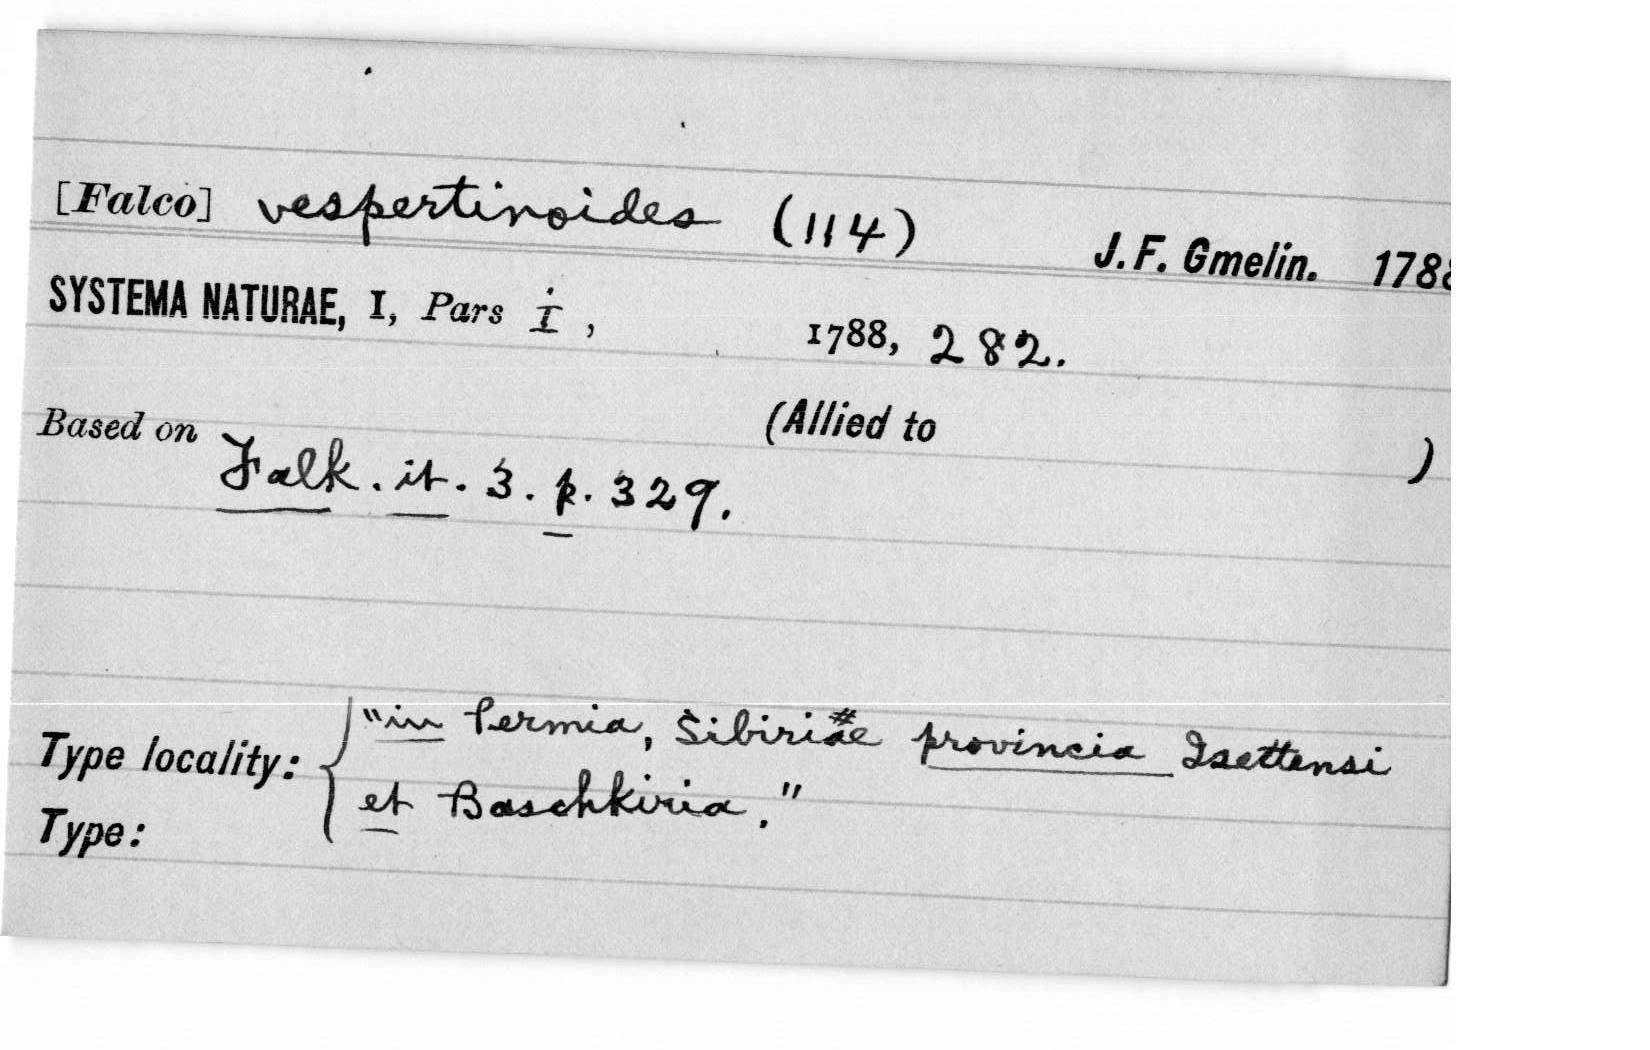 [Falco] vespertinoides (114) J. F. Gmelin. 178
SYSTEMA NATURAE, I, Pars i, 1788, 282.
Based on (Allied to )
Falk. it. 3. p. 329.
Type locality: "in Permia, Sibiriae provincia Isettensi
et Baschkiria."
Type: